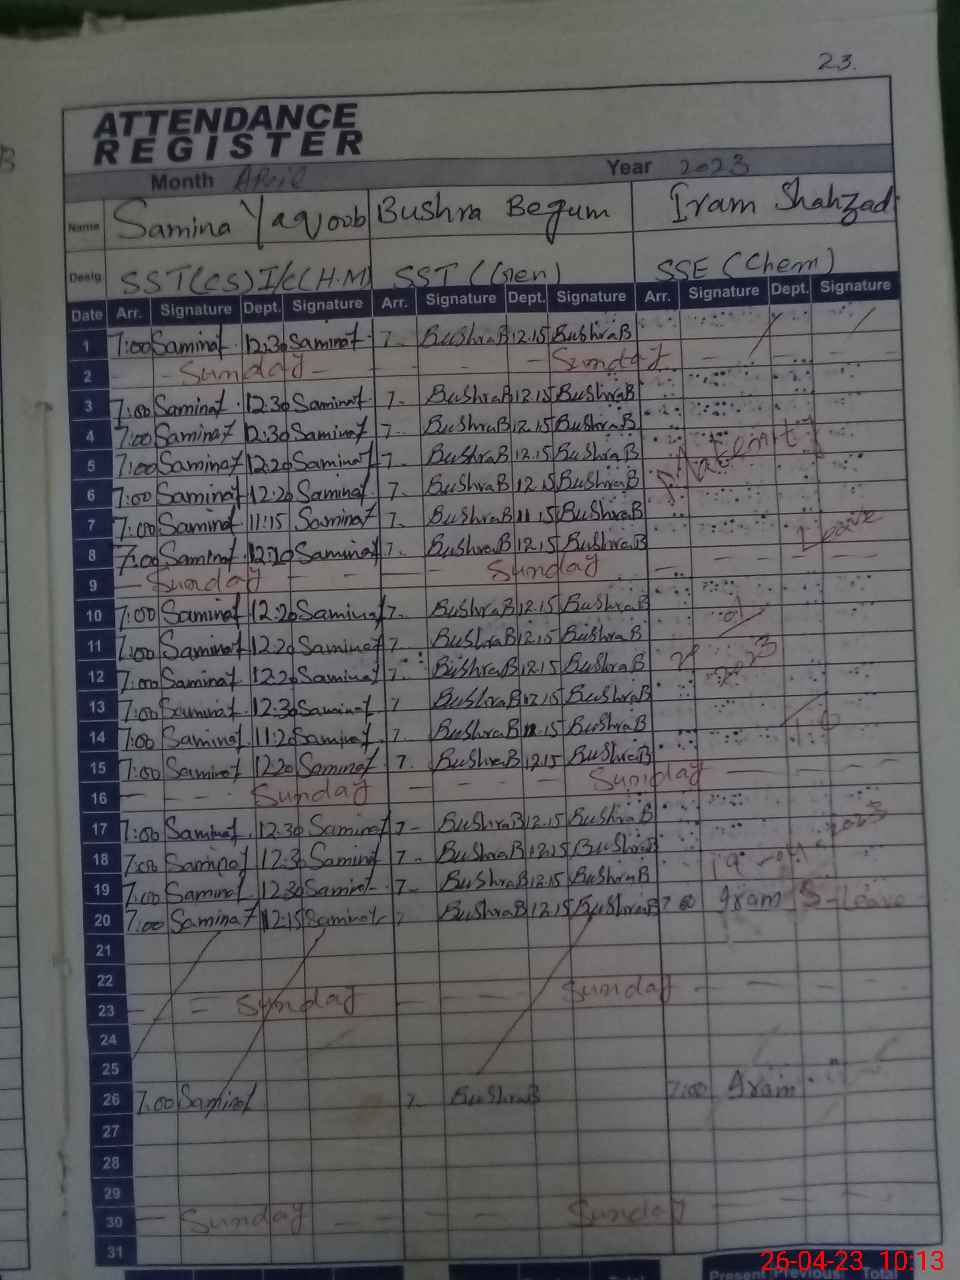 23.
ATTENDANCE
REGISTER
Month April Year 2023
Name Samina Yaqoob Bushra Begum Iram Shahzad
Desig SST(CS) I/C(H.M) SST (Gen) SSE (Chem)
Date Arr. Signature Dept. Signature Arr. Signature Dept. Signature Arr. Signature Dept. Signature
1 7:00 Samina 12:30 Samina 7- BushraB 12.15 BushraB
2 Sunday Sunday
3 7:00 Samina 12:30 Samina 7- BushraB 12.15 BushraB
4 7:00 Samina 12:30 Samina 7- BushraB 12.15 BushraB
5 7:00 Samina 12:20 Samina 7- BushraB 12.15 BushraB
6 7:00 Samina 12:20 Samina 7- BushraB 12.15 BushraB
7 7:00 Samina 11:15 Samina 7- BushraB 11.15 BushraB
8 7:00 Samina Samina 7- BushraB 12.15 BushraB Leave
9 Sunday Sunday
10 7:00 Samina 12:20 Samina 7- BushraB 12.15 BushraB
11 7:00 Samina 12:20 Samina 7- BushraB 12.15 BushraB
12 7:00 Samina 12:20 Samina 7- BushraB 12.15 BushraB 2023
13 7:00 Samina 12:30 Samina 7 BushraB 12.15 BushraB
14 7:00 Samina 11:20 Samina 7- BushraB BushraB to
15 7:00 Samina 12:20 Samina 7- BushraB 12.15 BushraB
16 Sunday Sunday
17 7:00 Samina 12:30 Samina 7- BushraB 12.15 BushraB
18 7:00 Samina 12:30 Samina 7- BushraB 12.15 BushraB 2023
19 7:00 Samina 12:30 Samina 7- BushraB 12.15 BushraB
20 7:00 Samina 12:15 Samina 7 BushraB 12.15 BushraB 7:00 Iram S-Leave
21
22
23 Sunday Sunday
24
25
26 7:00 Samina 7- BushraB 7:00 Iram
27
28
29
30 Sunday Sunday
31
Present Previous Total
26-04-23 10:13